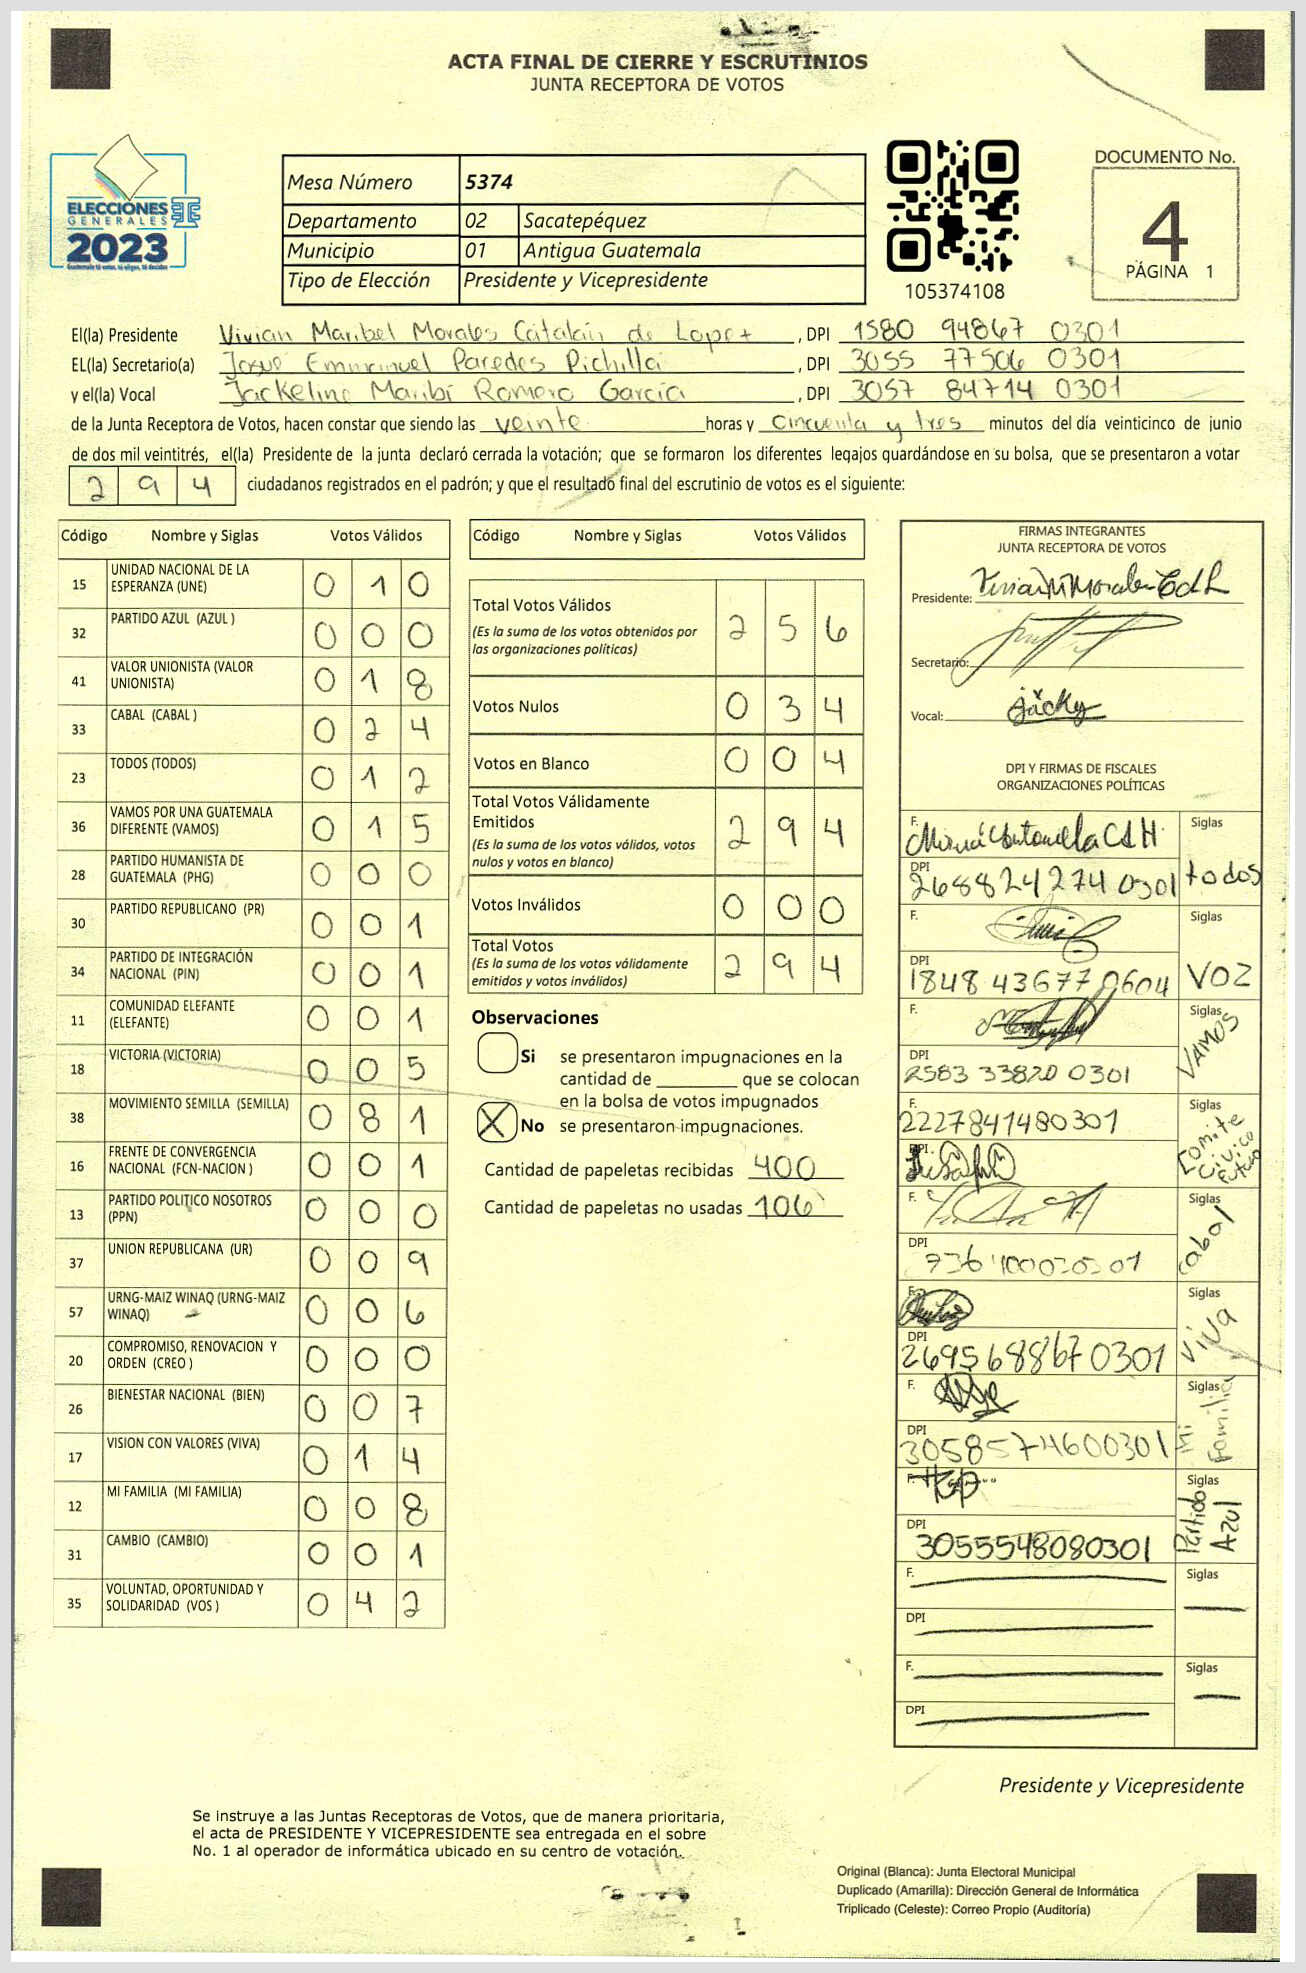 ACTA FINAL DE CIERRE Y ESCRUTINIOS
JUNTA RECEPTORA DE VOTOS
ELECCIONES
GENERALES
2023
Mesa Número 5374
Departamento 02 Sacatepéquez
Municipio 01 Antigua Guatemala
Tipo de Elección Presidente y Vicepresidente
105374108
DOCUMENTO No.
4
PÁGINA 1
El(la) Presidente Vivian Maribel Morales Catalán de Lopez, DPI 1580 94867 0301
EL(la) Secretario(a) Josué Emmanuel Paredes Pichilla, DPI 3055 77506 0301
y el(la) Vocal Jackeline Maribí Romero García, DPI 3057 84714 0301
de la Junta Receptora de Votos, hacen constar que siendo las veinte horas y cincuenta y tres minutos del día veinticinco de junio
de dos mil veintitrés, el(la) Presidente de la junta declaró cerrada la votación; que se formaron los diferentes legajos guardándose en su bolsa, que se presentaron a votar
294 ciudadanos registrados en el padrón; y que el resultado final del escrutinio de votos es el siguiente:
Código Nombre y Siglas Votos Válidos
15 UNIDAD NACIONAL DE LA ESPERANZA (UNE) 0 1 0
32 PARTIDO AZUL (AZUL ) 0 0 0
41 VALOR UNIONISTA (VALOR UNIONISTA) 0 1 8
33 CABAL (CABAL ) 0 2 4
23 TODOS (TODOS) 0 1 2
36 VAMOS POR UNA GUATEMALA DIFERENTE (VAMOS) 0 1 5
28 PARTIDO HUMANISTA DE GUATEMALA (PHG) 0 0 0
30 PARTIDO REPUBLICANO (PR) 0 0 1
34 PARTIDO DE INTEGRACIÓN NACIONAL (PIN) 0 0 1
11 COMUNIDAD ELEFANTE (ELEFANTE) 0 0 1
18 VICTORIA (VICTORIA) 0 0 5
38 MOVIMIENTO SEMILLA (SEMILLA) 0 8 1
16 FRENTE DE CONVERGENCIA NACIONAL (FCN-NACION ) 0 0 1
13 PARTIDO POLITICO NOSOTROS (PPN) 0 0 0
37 UNION REPUBLICANA (UR) 0 0 9
57 URNG-MAIZ WINAQ (URNG-MAIZ WINAQ) 0 0 6
20 COMPROMISO, RENOVACION Y ORDEN (CREO ) 0 0 0
26 BIENESTAR NACIONAL (BIEN) 0 0 7
17 VISION CON VALORES (VIVA) 0 1 4
12 MI FAMILIA (MI FAMILIA) 0 0 8
31 CAMBIO (CAMBIO) 0 0 1
35 VOLUNTAD, OPORTUNIDAD Y SOLIDARIDAD (VOS ) 0 4 2
Código Nombre y Siglas Votos Válidos
Total Votos Válidos 2 5 6
(Es la suma de los votos obtenidos por
las organizaciones políticas)
Votos Nulos 0 3 4
Votos en Blanco 0 0 4
Total Votos Válidamente
Emitidos 2 9 4
(Es la suma de los votos válidos, votos
nulos y votos en blanco)
Votos Inválidos 0 0 0
Total Votos 2 9 4
(Es la suma de los votos válidamente
emitidos y votos inválidos)
Observaciones
Si se presentaron impugnaciones en la
cantidad de ________ que se colocan
en la bolsa de votos impugnados
X No se presentaron impugnaciones.
Cantidad de papeletas recibidas 400
Cantidad de papeletas no usadas 106
FIRMAS INTEGRANTES
JUNTA RECEPTORA DE VOTOS
Presidente:
Secretario:
Vocal: jacky
DPI Y FIRMAS DE FISCALES
ORGANIZACIONES POLÍTICAS
F. Siglas
DPI 2688242740301 todos
F. Siglas
DPI 1848 43677 0604 VOZ
F. Siglas
DPI 2583 33820 0301 VAMOS
F. 2227841480301 Siglas
DPI Comite Civico Futuro
F. Siglas
DPI cabal
F. Siglas
DPI 2695688670301 Viva
F. Siglas
DPI 3058574600301 Mi familia
F. Siglas
DPI 3055548080301 Partido Azul
F. Siglas
DPI
F. Siglas
DPI
Presidente y Vicepresidente
Se instruye a las Juntas Receptoras de Votos, que de manera prioritaria,
el acta de PRESIDENTE Y VICEPRESIDENTE sea entregada en el sobre
No. 1 al operador de informática ubicado en su centro de votación.
Original (Blanca): Junta Electoral Municipal
Duplicado (Amarilla): Dirección General de Informática
Triplicado (Celeste): Correo Propio (Auditoría)